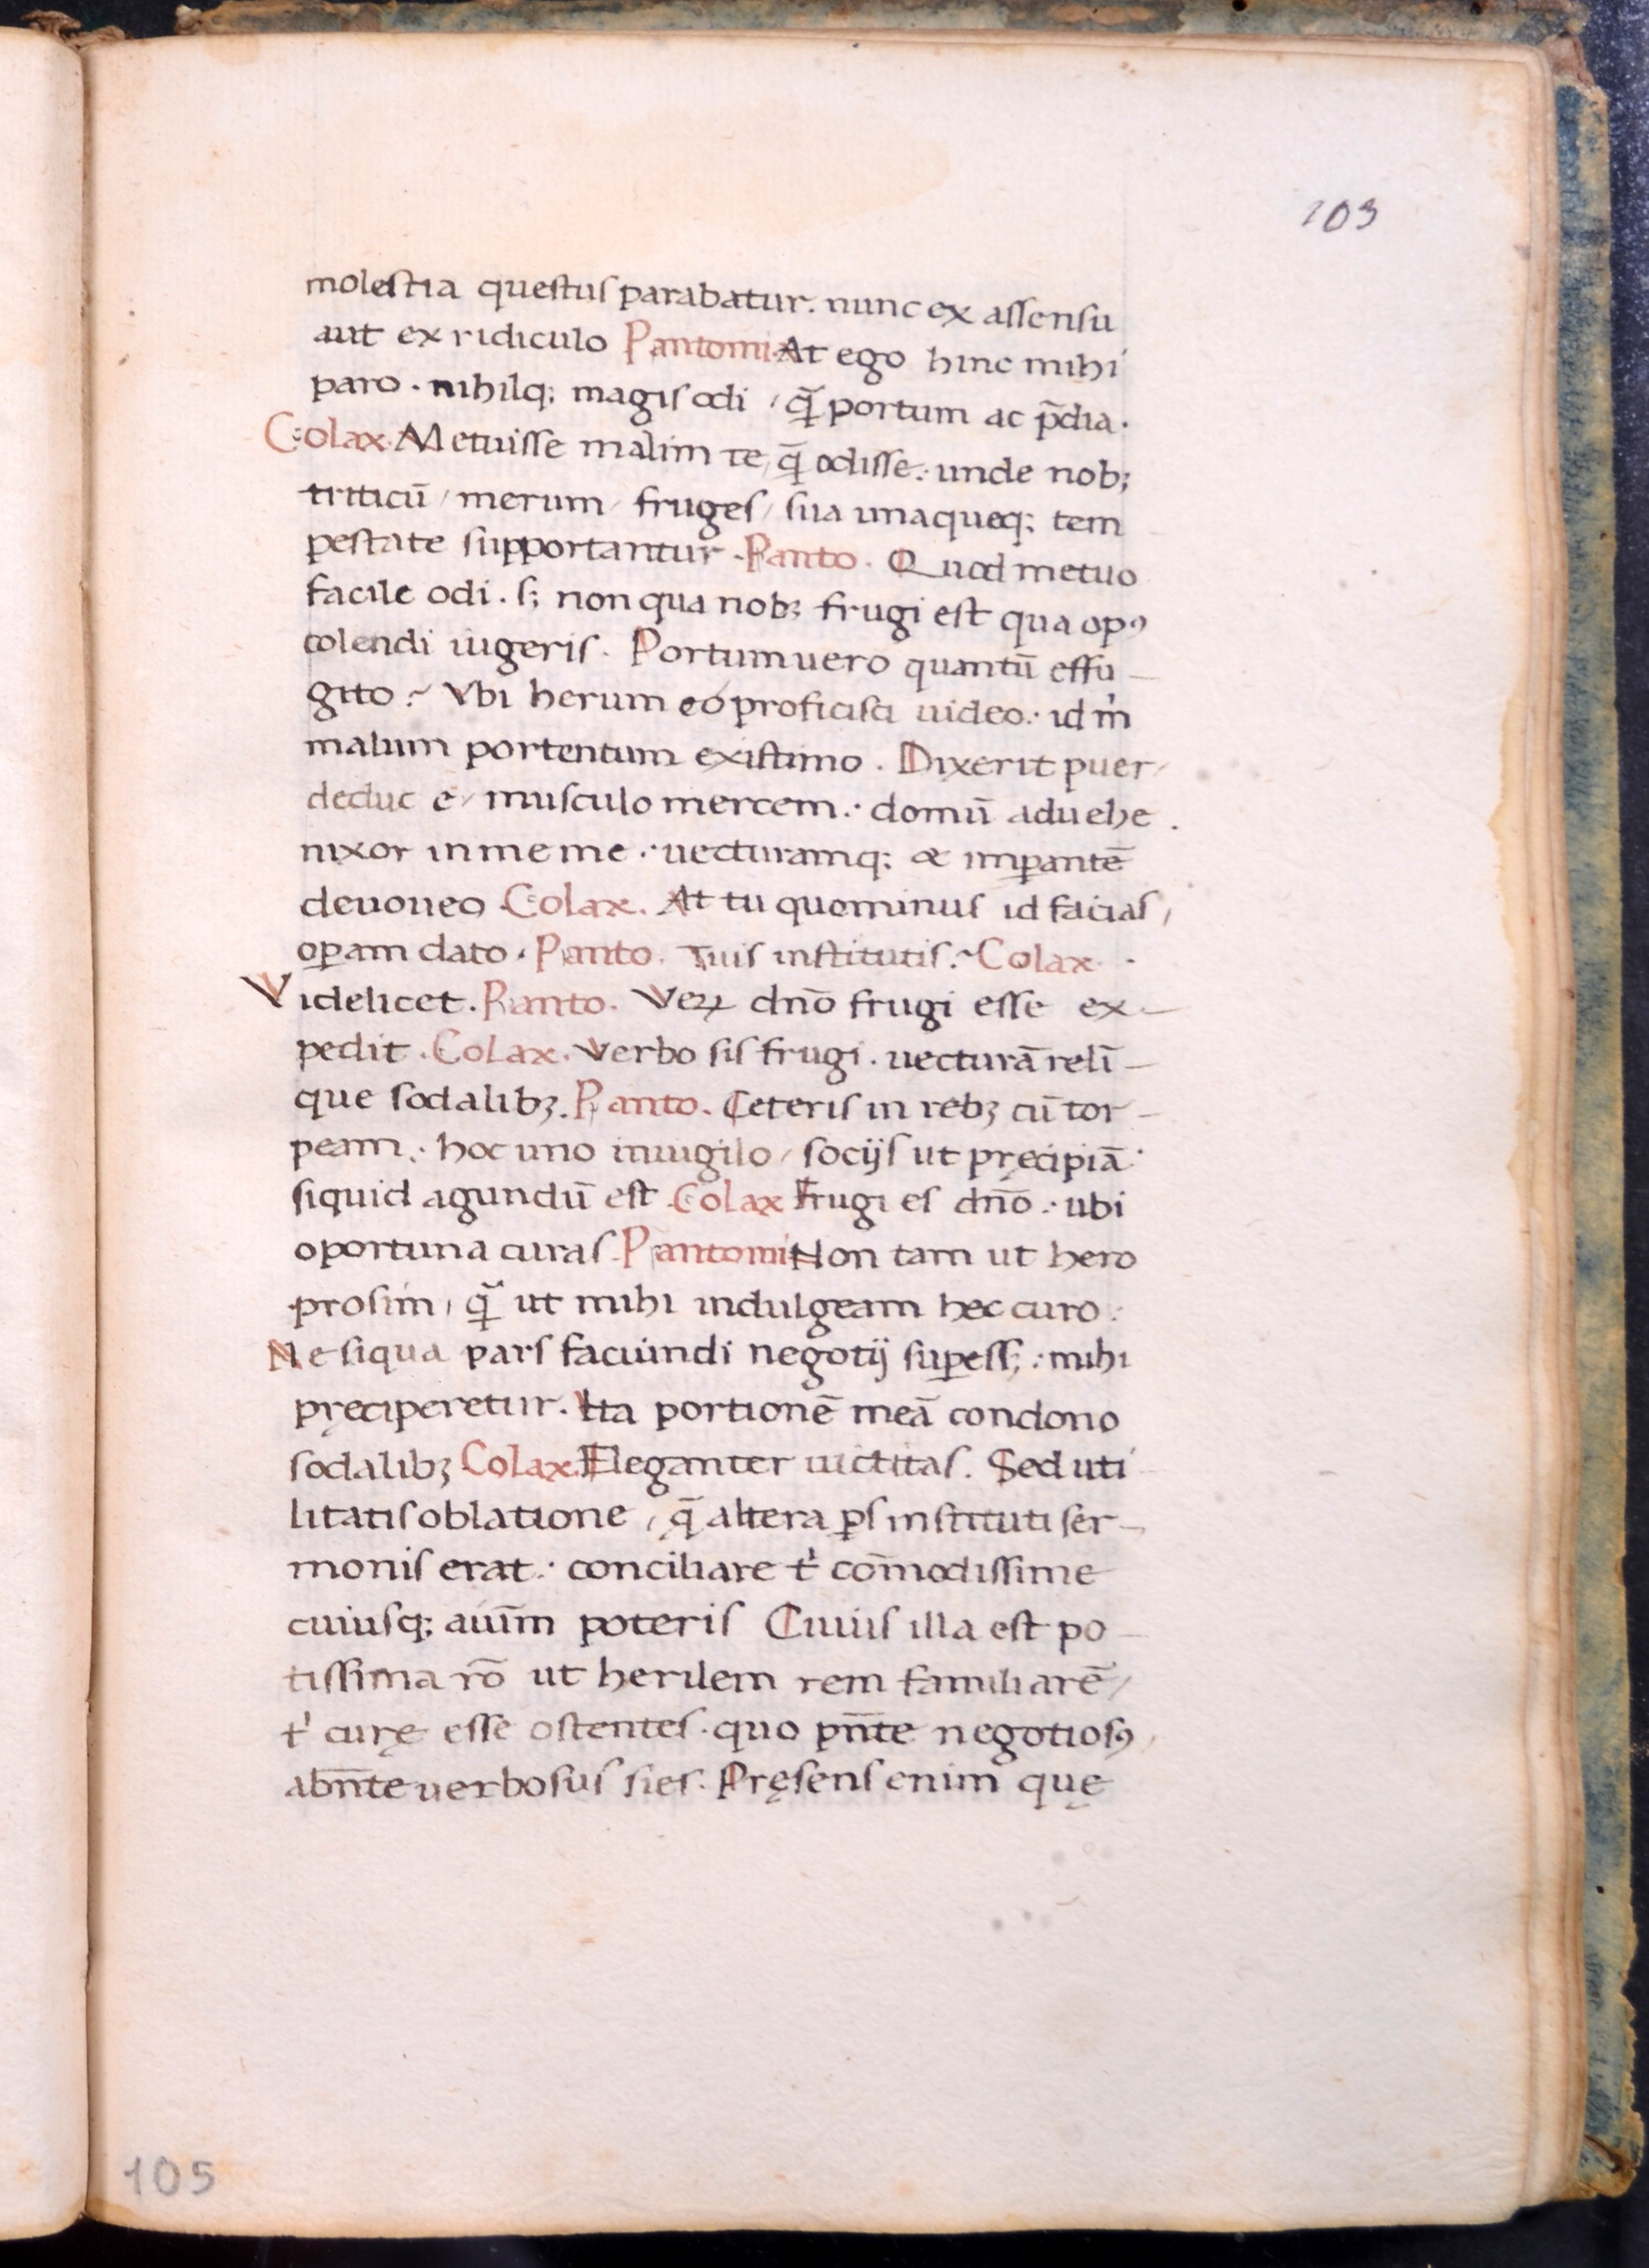 103
molestia questus parabatur. nunc ex assensu
aut ex ridiculo Pantomi. At ego hinc mihi
paro. nihilq; magis odi / q̃ portum ac p̃dia.
Colax. Metuisse malim te, q̃ odisse: unde nob;
triticū / merum / fruges / sua unaqueq; tem
pestate supportantur. Panto. Quod metuo
facile odi. s; non qua nob; frugi est qua opꝰ
colendi iugeris. Portum uero quantū effu-
gito? Vbi herum eó proficisci uideo: id m̃
malum portentum existimo. Dixerit puer /
deduc e / musculo mercem: domū aduehe.
nixor in me me: uecturamq; & imꝑantē
deuoueo Colax. At tu quominus id facias,
oꝑam dato. Panto. Tuis institutis? Colax.
Videlicet. Panto. Veꝝ dn̄o frugi esse ex-
pedit. Colax. Verbo sis frugi. uecturā reli-
que sodalibꝫ. Panto. Ceteris in rebꝫ cū tor-
peam: hoc uno inuigilo / socijs ut pręcipiā:
siquid agundū est. Colax Frugi es dn̄o: ubi
oportuna curas. Pantomi Non tam ut hero
prosim, q̃ ut mihi indulgeam hec curo:
Ne siqua pars faciundi negotij suꝑess;: mihi
pręciperetur. Ita portionē meā condono
sodalibꝫ Colax. Eleganter uictitas. Sed uti
litatis oblatione, q̄ altera ꝑs instituti ser-
monis erat: conciliare t' cōmodissime
cuiusq; auīm poteris Cuius illa est po-
tissima rō ut herilem rem familiarē /
t' curę esse ostentes. quo pn̄te negotiosꝰ,
abn̄te uerbosus sies. Pręsens enim quę
105